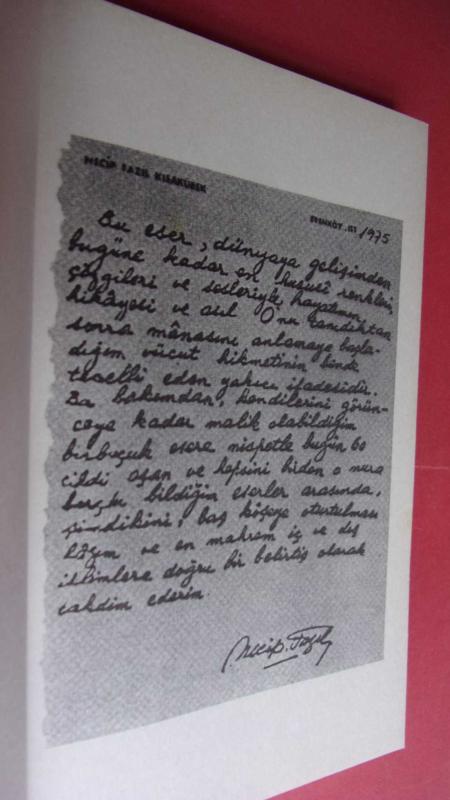 NECİP FAZIL KISAKÜREK
ERENKÖY, 1975
Bu eser, dünyaya gelişimden
bugüne kadar en hususî renkleri,
çizgileri ve sesleriyle hayatımın
hikâyesi ve asıl O'nu tanıdıktan
sonra mânasını anlamaya başla-
dığım vücut hikmetinin bende
tecelli eden yakıcı ifadesidir.
Bu bakımdan, kendilerini görün-
ceye kadar malik olabildiğim
birbuçuk esere nispetle bugün 60
cildi aşan ve hepsini birden o nura
borçlu bildiğim eserler arasında,
şimdikini, baş köşeye oturtulması
lâzım ve en mahrem iç ve dış
iklimlere doğru bir belirtiş olarak
takdim ederim.
Necip Fazıl